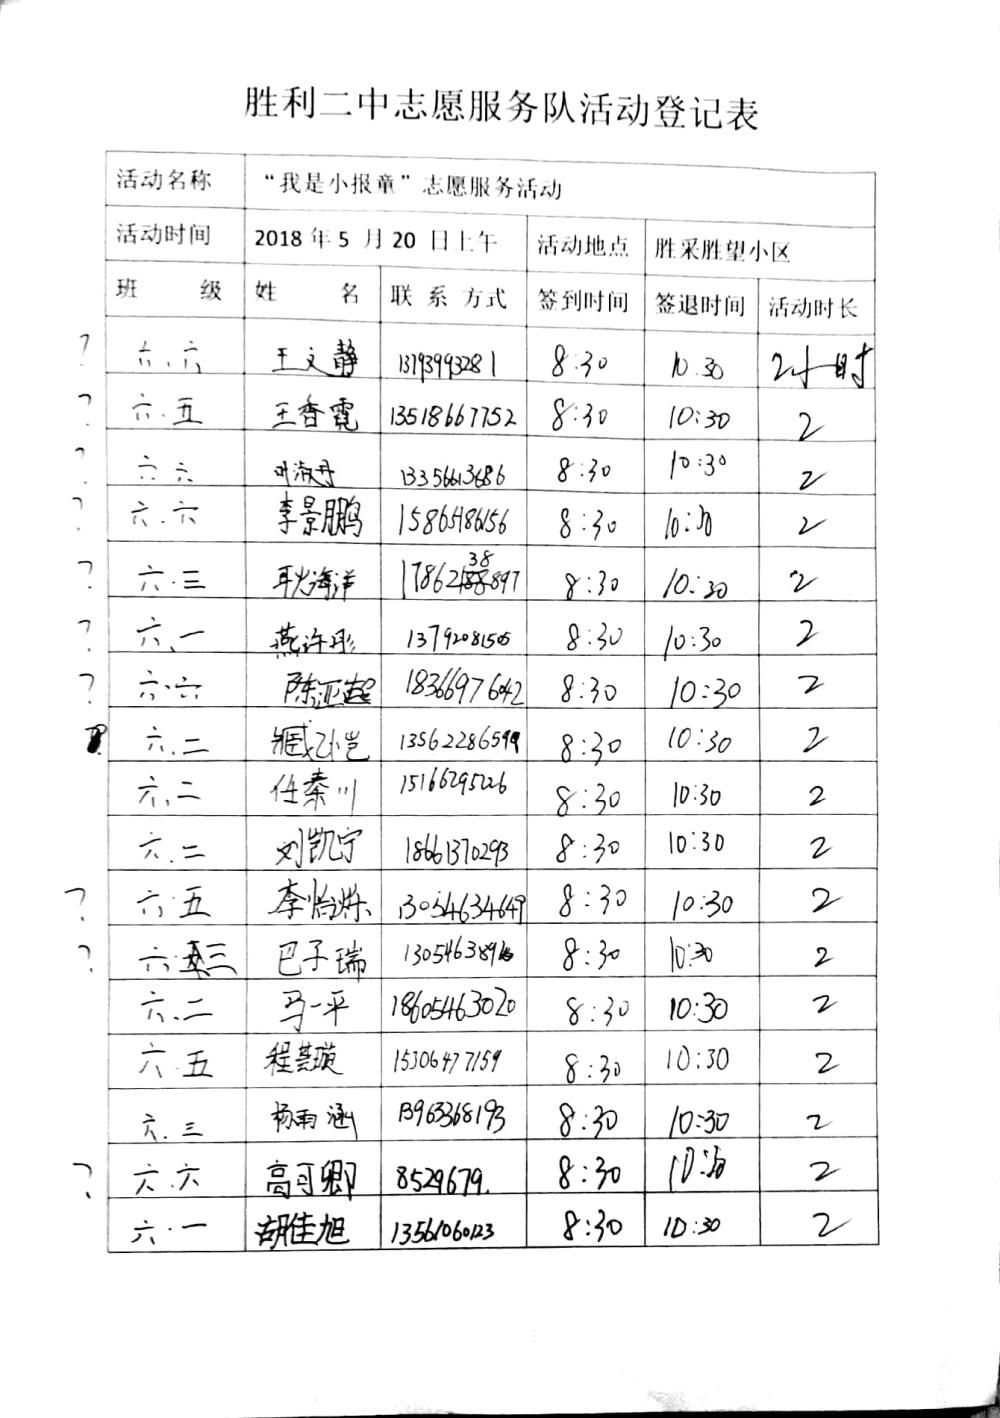 胜利二中志愿服务队活动登记表
活动名称 “我是小报童”志愿服务活动
活动时间 2018 年 5 月 20 日上午 活动地点 胜采胜望小区
班 级 姓 名 联 系 方式 签到时间 签退时间 活动时长
? 六.六 王文静 13793993281 8:30 10.30 2小时
? 六.五 王香霓 13518667752 8:30 10:30 2
? 六 六 叶淑丹 13356613686 8:30 10:30 2
? 六.六 李景鹏 15865486156 8:30 10:30 2
? 六.三 耿海洋 8:30 10:30 2
? 六.一 燕许彤 13792081505 8:30 10:30 2
? 六.六 陈亚超 18366977642 8:30 10:30 2
?. 六.二 臧 13562286599 8:30 10:30 2
六.二 任秦川 15166295226 8:30 10:30 2
六.二 刘凯宁 18661370293 8:30 10:30 2
? 六.五 李怡烁 13054634649 8:30 10:30 2
? 六.三 巴子瑞 8:30 10:30 2
六.二 马一平 18605463020 8:30 10:30 2
六.五 程 15306477159 8:30 10:30 2
六.三 杨雨涵 13963368193 8:30 10:30 2
? 六.六 高可卿 8529679. 8:30 10:30 2
六.一 胡佳旭 13561060123 8:30 10:30 2